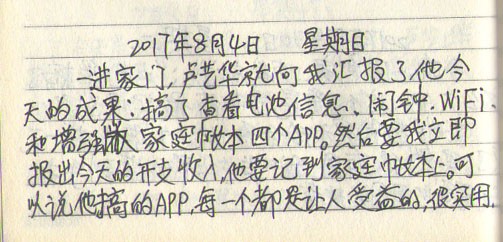 2017年8月4日 星期日
一进家门,卢艺华就向我汇报了他今
天的成果:搞了查看电池信息、闹钟、WiFi
和增强版家庭帐本四个APP。然后要我立即
报出今天的开支收入,他要记到家庭帐本上。可
以说他搞的APP,每一个都是让人受益的,很实用。